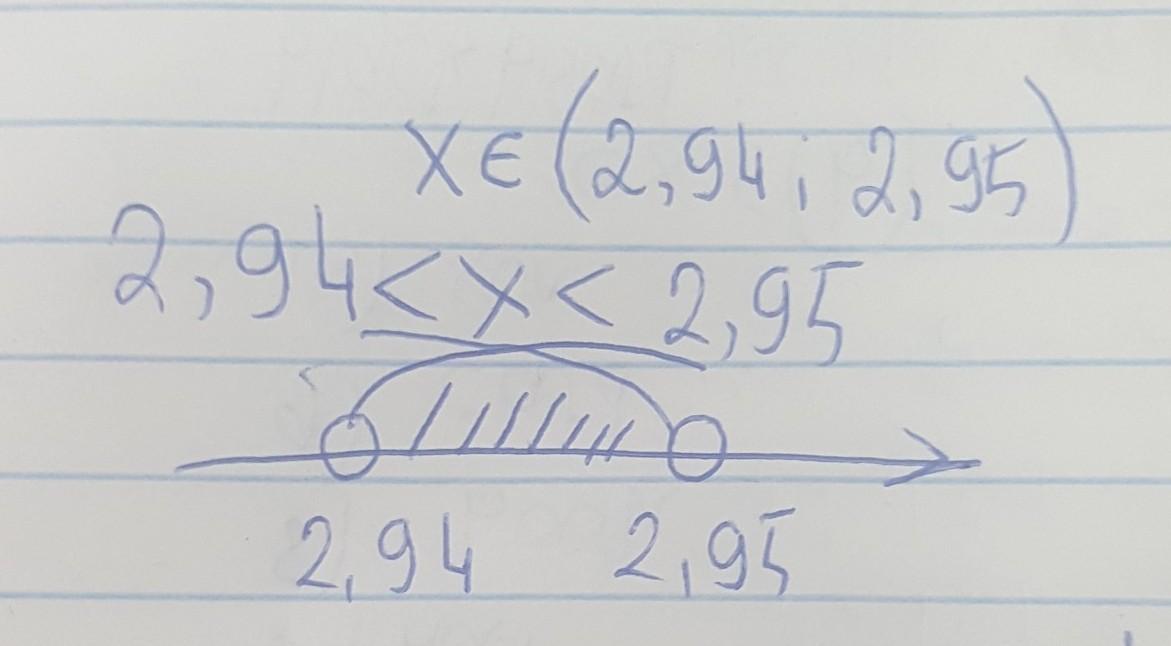 X∈(2,94; 2,95)
2,94<x<2,95
2,94 2,95